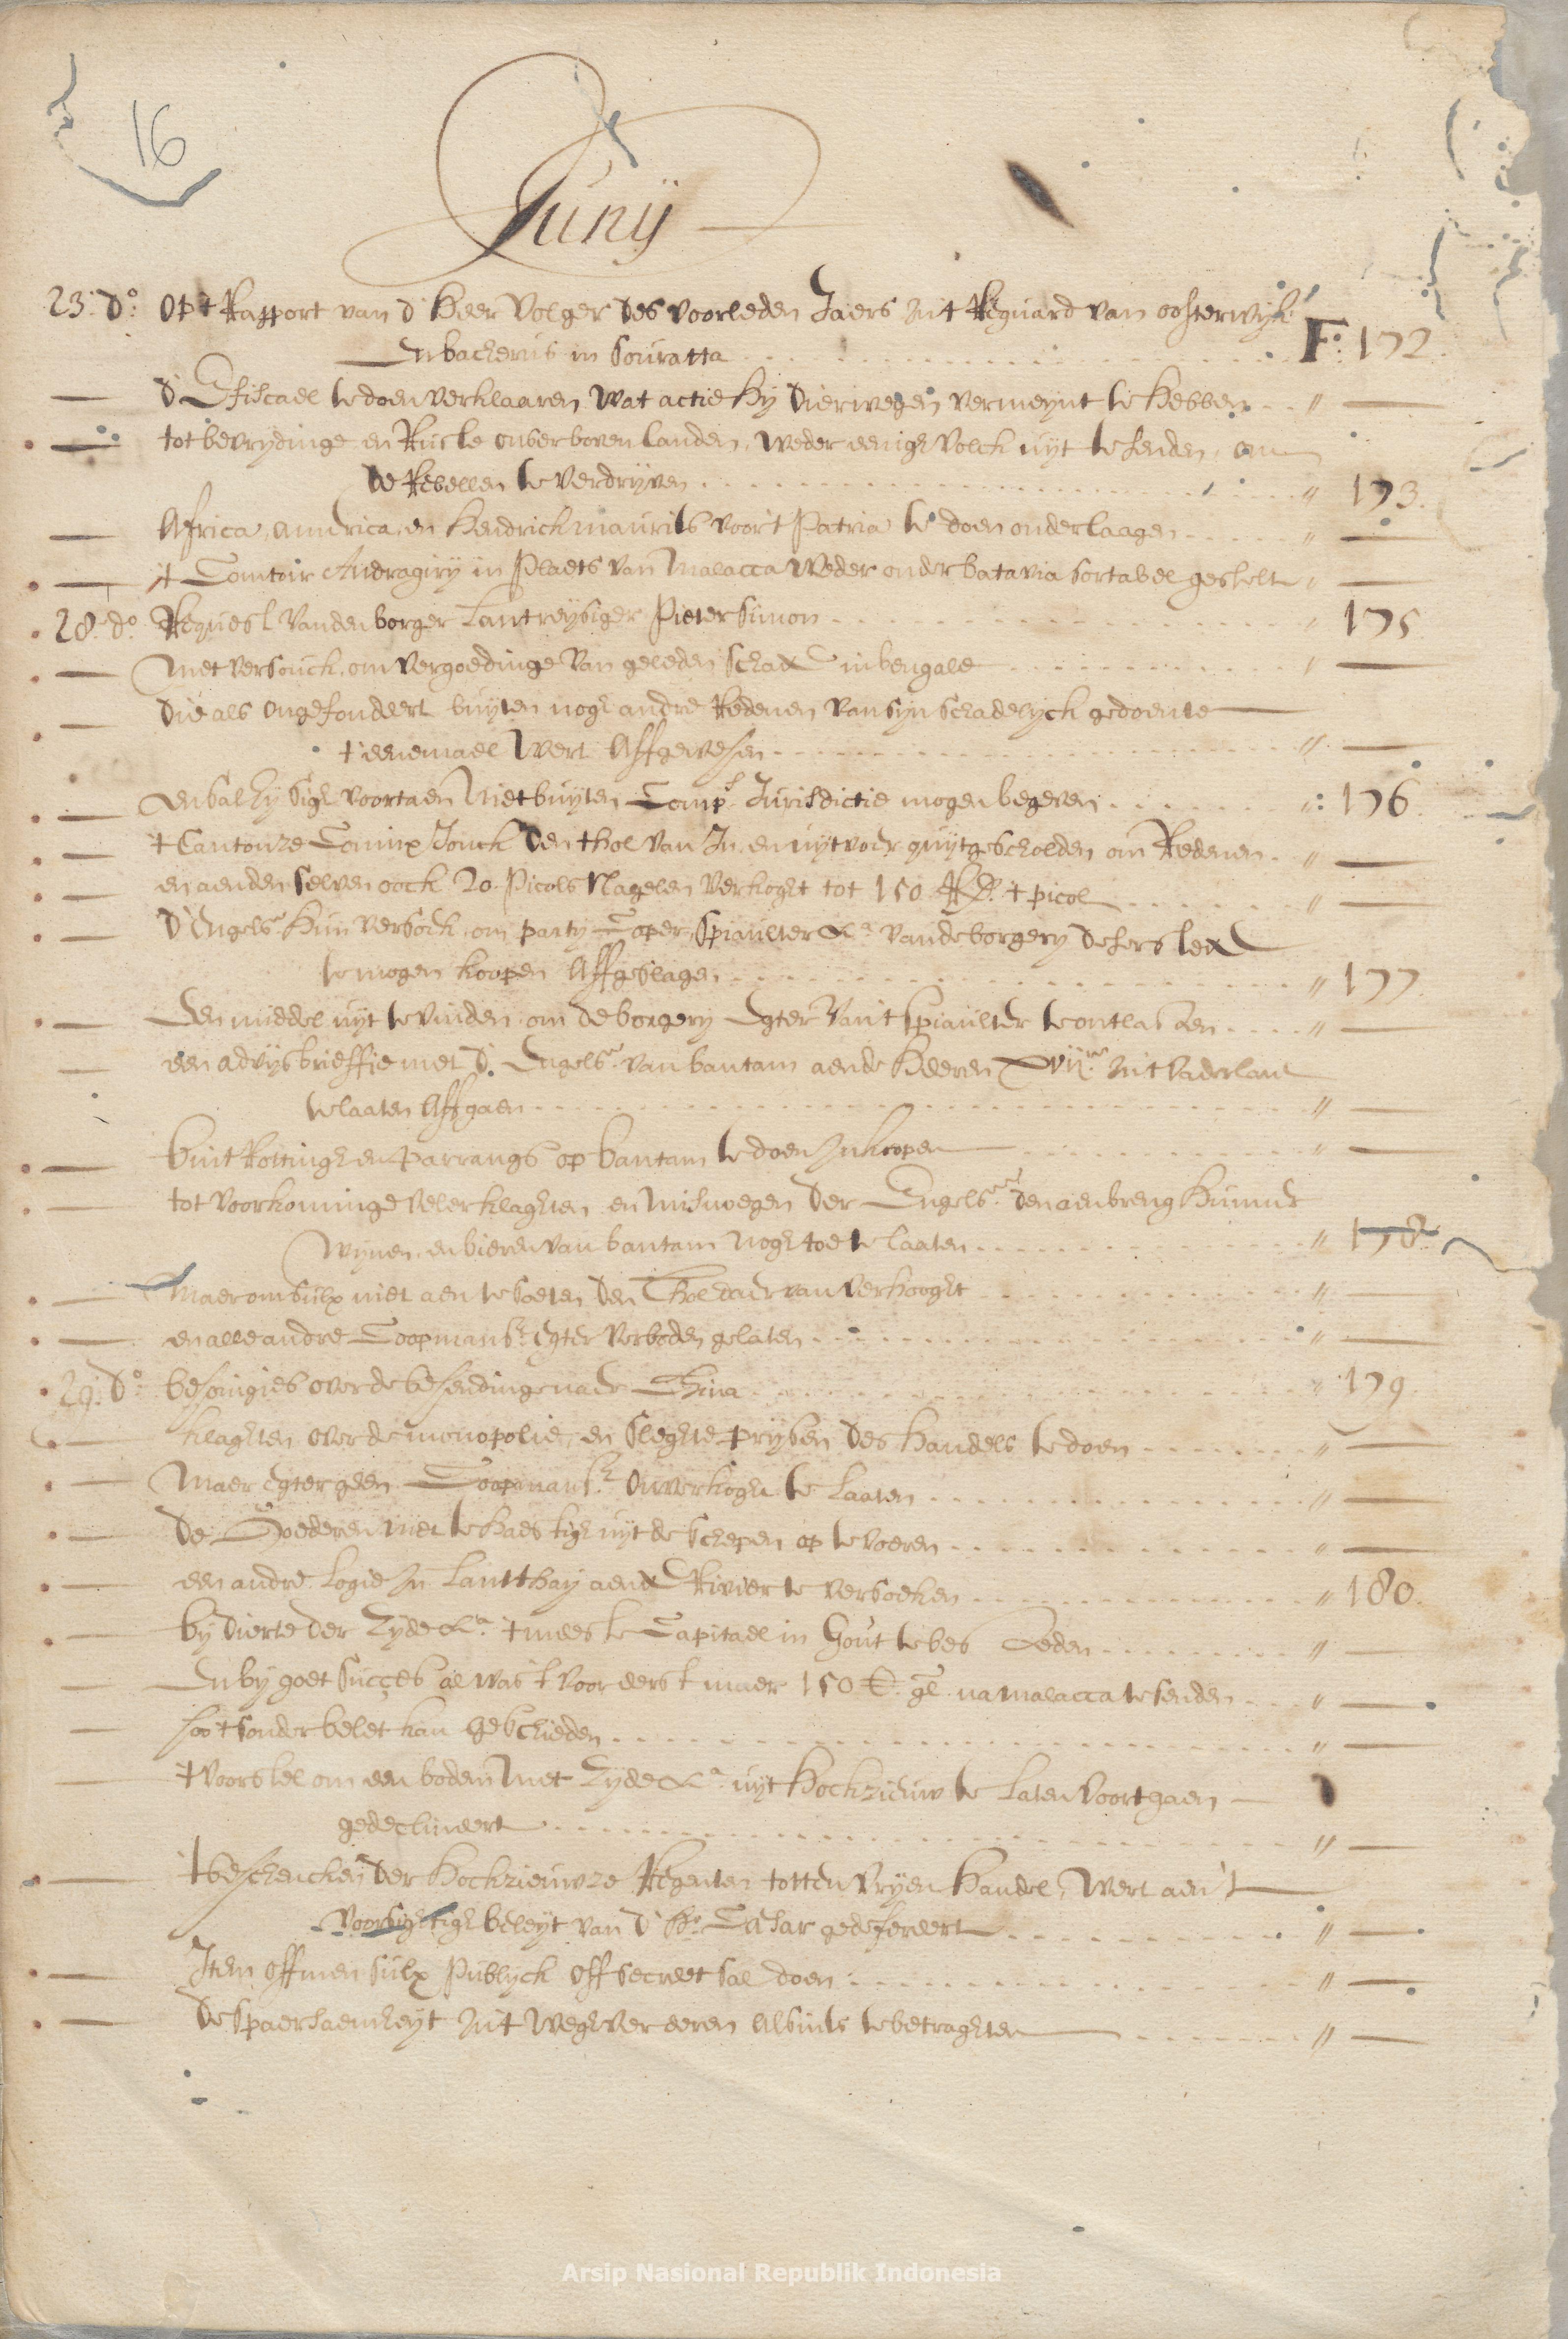 16
Junij
23: do: Op 't Rapport van d' Heer Volger des voorleden Jaers in 't Reguard van oosterwijk
En bacherus in Souratta F:o 172.
— d' E fiscael te doen verklaaren, wat actie hij dierwegen vermeynt te hebben " —
— tot bevrydinge en Ruste onser boven landen, weder eenigh volck uijt te senden, om
de Rebellen te verdrijven " 173.
— Africa, America, en Hendrick maurits voor 't Patria te doen onderlaagen " —
— 't Comtoir Andragirij in Plaets van Malacca weder onder batavia sortabel gestelt " —
28: do: Request van den borger Lantreijsiger Pieter Simon " 175
— Met versouck, om vergoedinge van geleden schade in bengale " —
— die als ongefondeert buijten nogh andre Redenen van sijn schadelijck gedoente
't eenemael wert Affgewesen " —
— en sal hij sigh voortaen Niet buijten Comps. Jurisdictie mogen begeven " 176.
— 't Cantonze Coninx Jonck den thol van In- en uijtvoer quijtgescholden om Redenen " —
— en aen den selven oock 20 Picols Nagelen verkoght tot 150 Rds. 't picol " —
— d' Engelse. Hun versoek, om partij Coper, Spiaulter &a. van de borgerij deser stede
te mogen koopen Affgeslagen " 177
— Een middel uijt te vinden, om de borgerij Egter van 't Spiaulter te ontlasten " —
— een advijs brieffie met d' Engelse. van bantam aen de Heeren XVIIen. in 't Vaderlant
te laaten Affgaen " —
— bint Rottingh en Parrangs op bantam te doen Inkoopen " —
— tot voorkominge veler klaghten en misnoegen der Engelse. den aenbreng Hunner
Wijnen, en bieren van bantam nogh toe te laaten " 178
— Maer om sulx niet aen te Soeten den Thol daer van verhooght " —
— en alle andre Coopmansz. Egter verboden gelaten " —
29: do: besoingies over de besendinge naer China " 179.
— klaghten over de monopolie, en Sleghte prijsen des Handels te doen " —
— Maer Egter geen Coopmansz. onverkoght te laaten " —
— De Goederen niet te haestigh uijt de Schepen op te voeren " —
— een andre Logie in Lantthaij aen de Rivier te versoeken " 180.
— bij dierte der Zijde &a. 't meeste Capitael in Gout te besteden " —
— En bij goet Succes al was 't voor eerst maer 150 gl. na malacca te senden " —
— soo 't sonder belet kan geschieden " —
— 't Voorstel om een bodem Met Zijde &a. uijt Hockzieuw te Laten Voortgaen —
gedeclineert " —
— 't beschencken der Hockzieuwze Regenten tot den vrijen Handel, wert aen 't
voorsightigh beleijt van d' Hr. Casar gedefereert " —
— Item off men sulx Publijck off secreet sal doen " —
— De Spaersaemheijt in 't weghvereeren Alsints te betraghten " —
Arsip Nasional Republik Indonesia